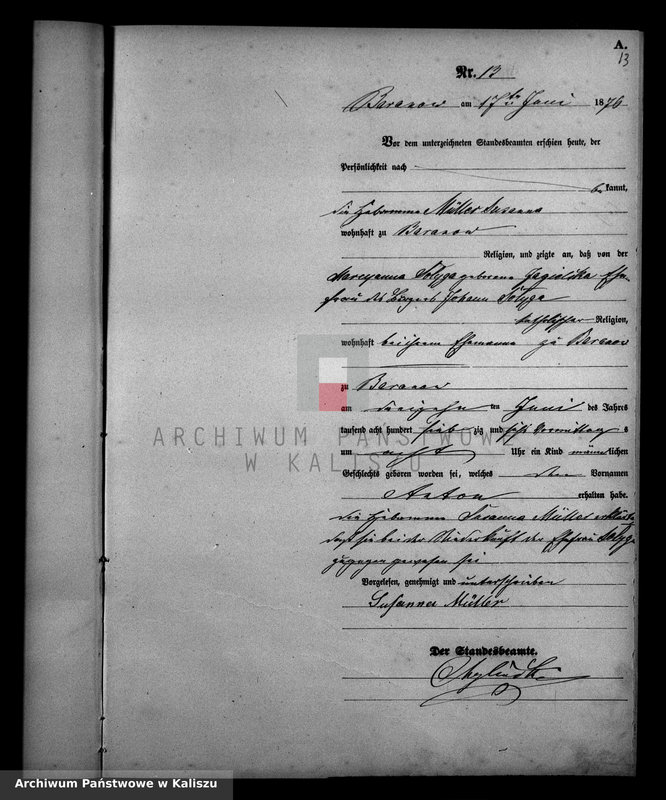 A.
13
Nr. 13
Baranow am 17ten Juni 1876
Vor dem unterzeichneten Standesbeamten erschien heute, der
Persönlichkeit nach
bekannt,
die Hebamme Müller Susanna
wohnhaft zu Baranow
Religion, und zeigte an, daß von der
Maryanna geborene Ehe-
frau des Johann
katholischer Religion,
wohnhaft bei ihrem Ehemanne zu Baranow
zu Baranow
am dreizehn ten Juni des Jahres
tausend acht hundert sieb zig und sechs Vormittag s
um acht Uhr ein Kind männlichen
Geschlechts geboren worden sei, welches den Vornamen
Anton erhalten habe.
Die Hebamme Susanna Müller erklärte
daß sie bei der Niederkunft der Ehefrau
zugegen gewesen sei
Vorgelesen, genehmigt und unterschrieben
Susanna Müller
Der Standesbeamte.
ARCHIWUM PAŃSTWOWE
W KALISZU
Archiwum Państwowe w Kaliszu